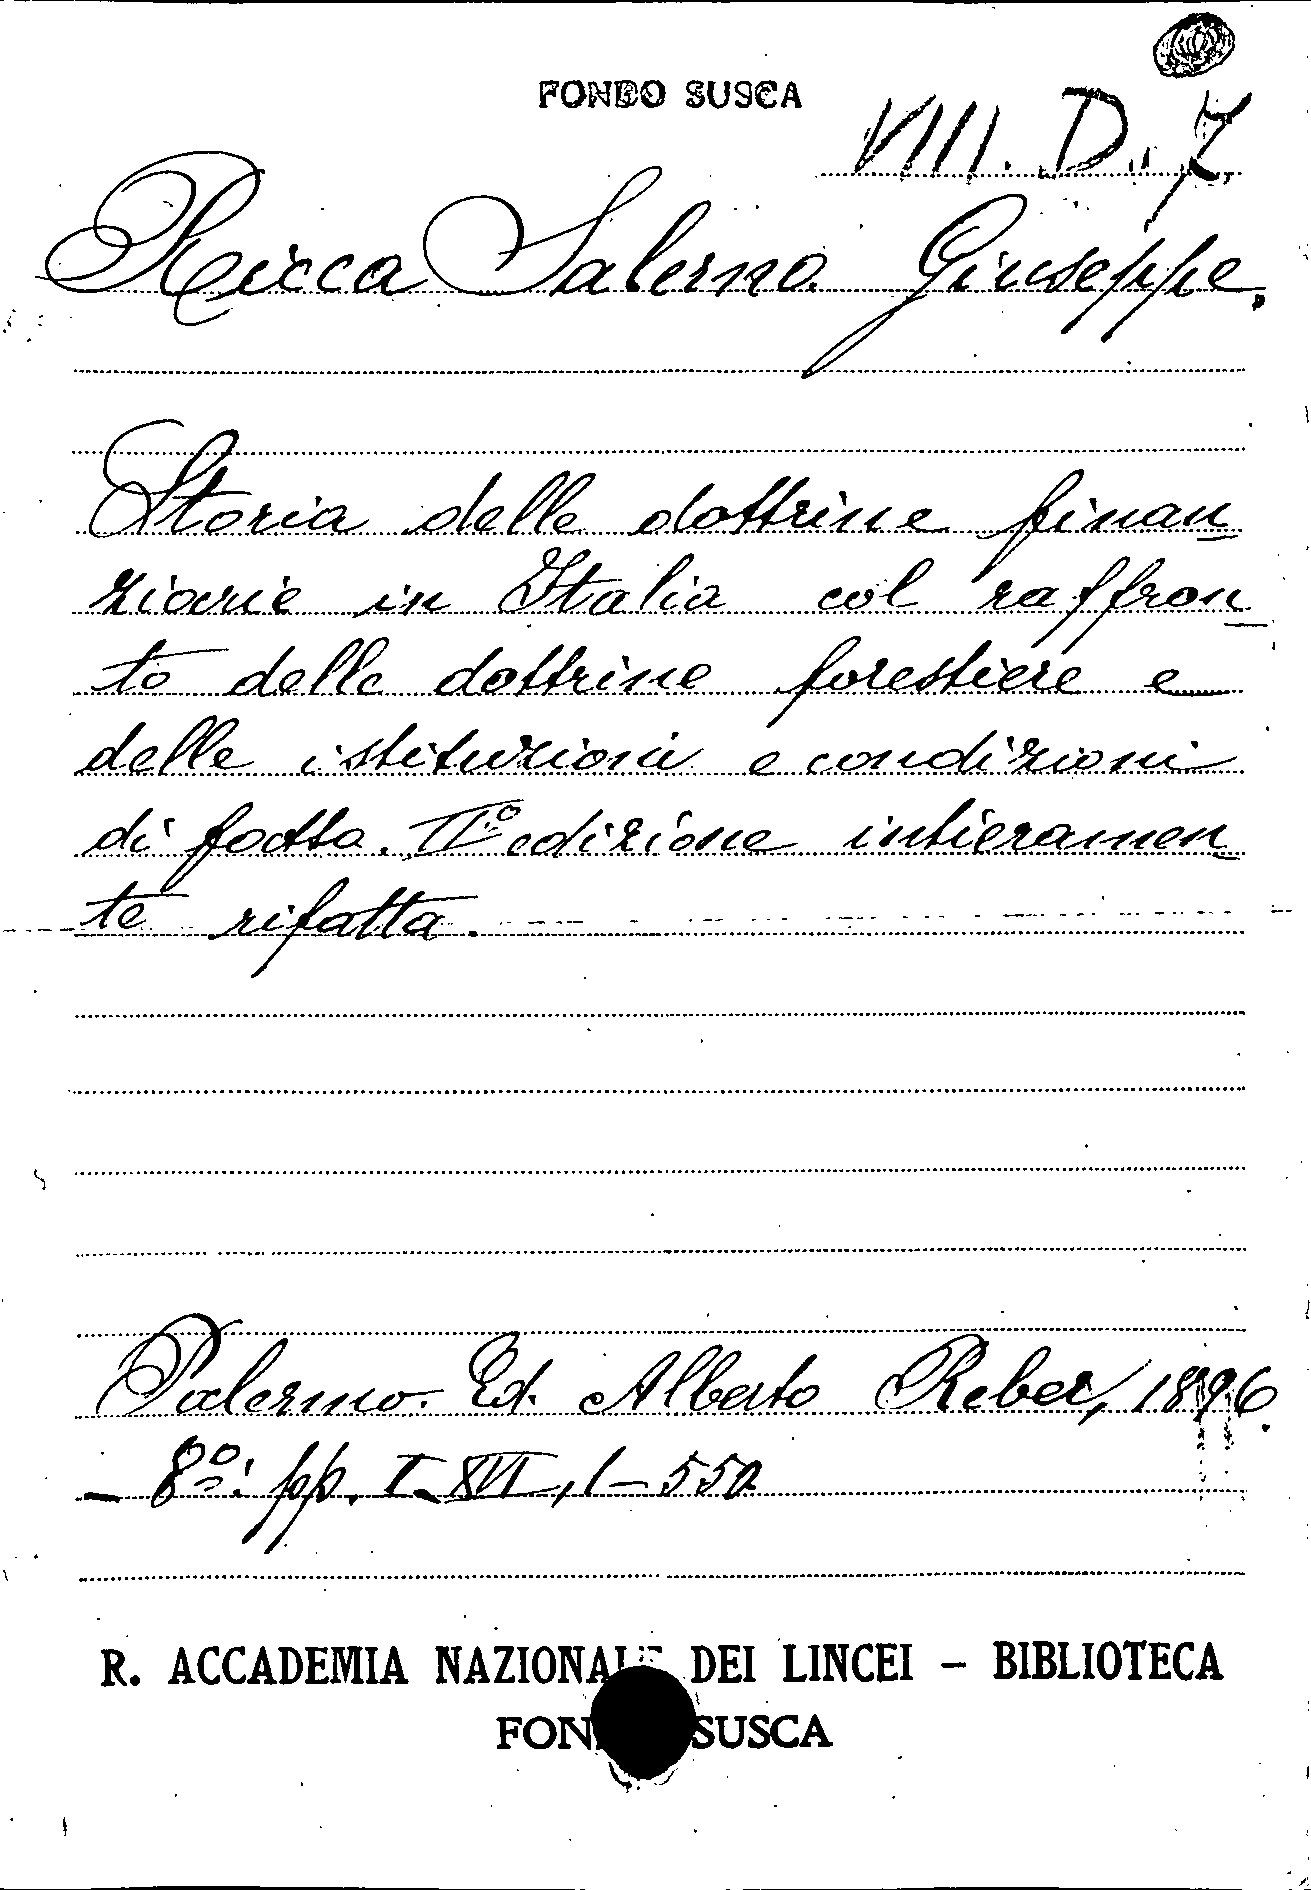 FONDO SUSCA
VIII. D. 7
Ricca Salerno Giuseppe.
Storia delle dottrine finan
ziarie in Italia col raffron
to delle dottrine forestiere e
delle istituzioni e condizioni
di fatto. IIº edizione intieramen
te rifatta.
Palermo. Ed. Alberto Reber, 1896.
- 8º: pp. I-XVI, 1-550
R. ACCADEMIA NAZIONALE DEI LINCEI - BIBLIOTECA
FONDO SUSCA